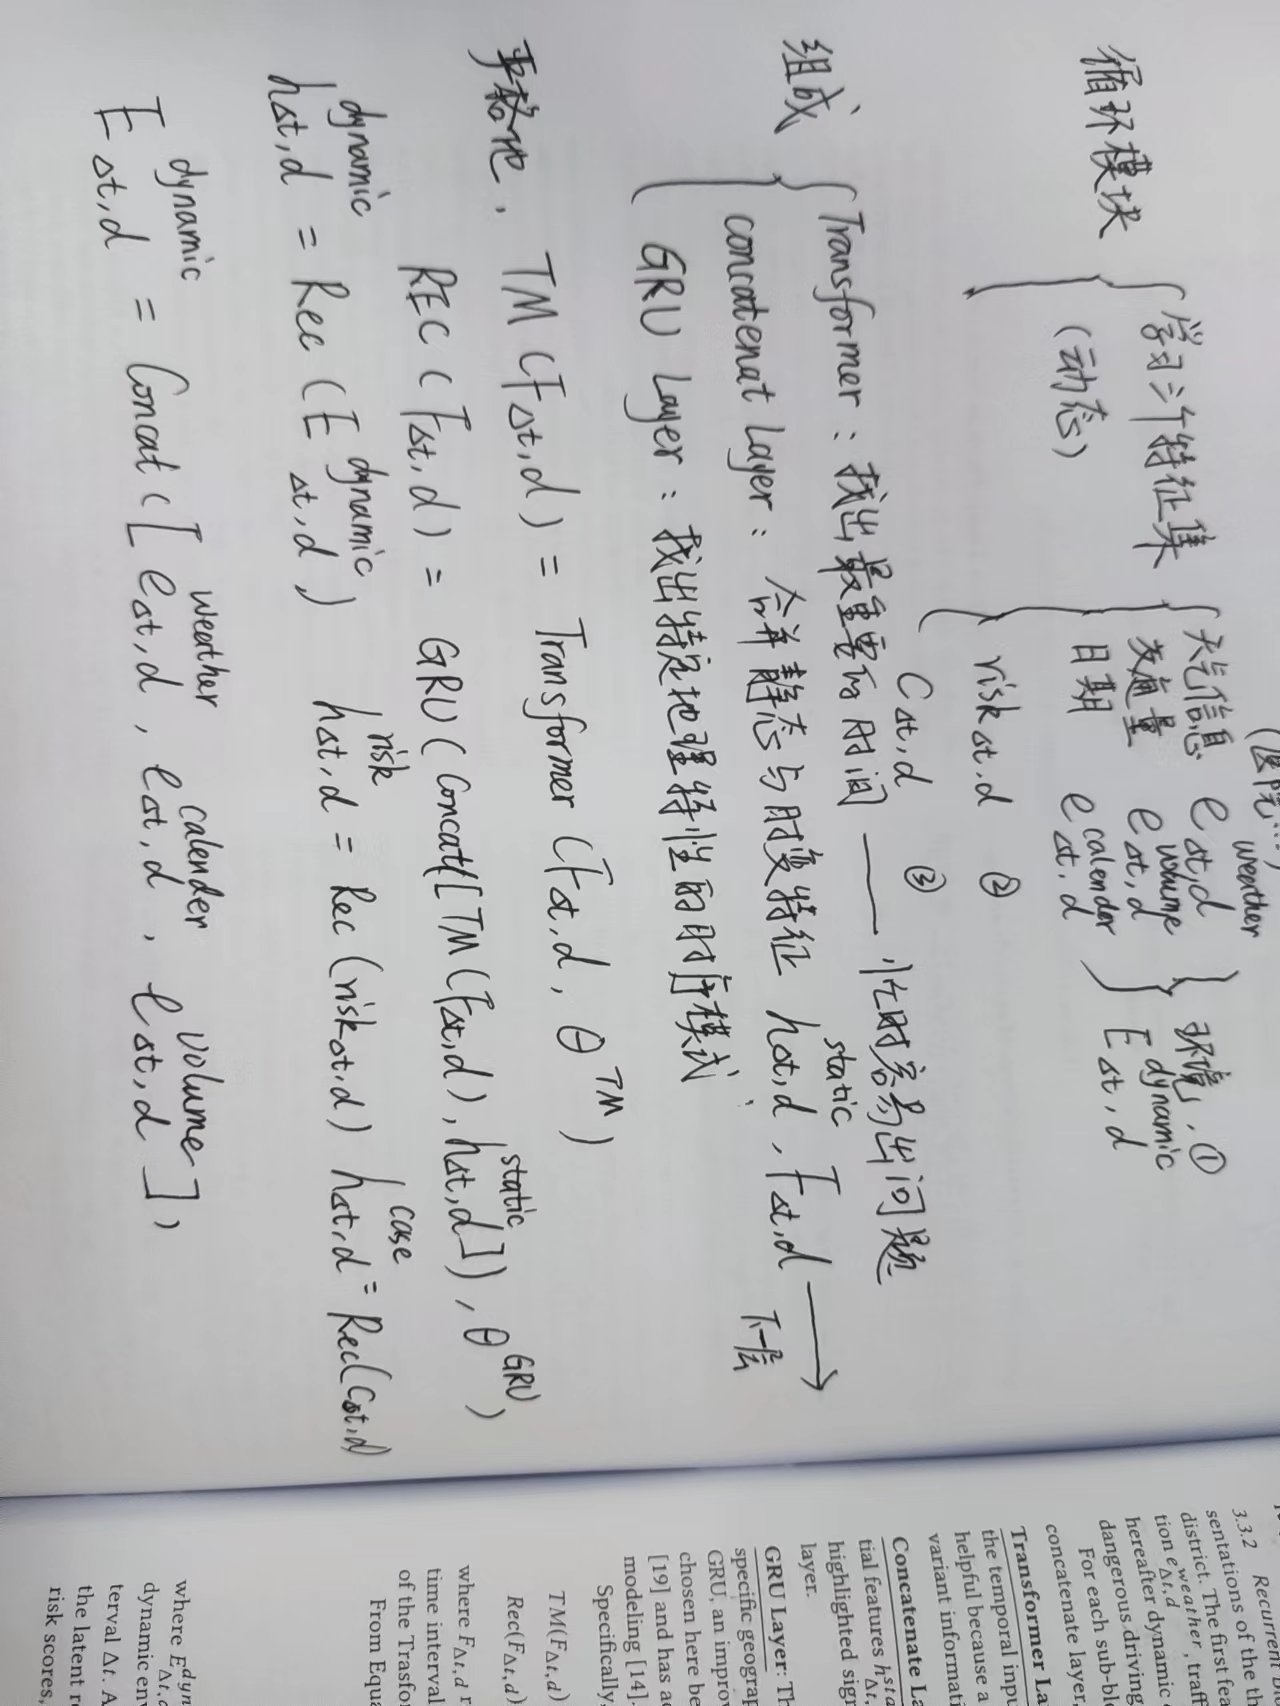 (医院...)
循环模块 { 学习三个特征集 { 天气信息 e_{Δt,d}^{weather} } 环境, ①
(动态) 交通量 e_{Δt,d}^{volume} E_{Δt,d}^{dynamic}
日期 e_{Δt,d}^{calender}
risk_{Δt,d} ②
C_{Δt,d} ③
组成 { Transformer: 找出最重要的时间 —— 忙时容易出问题
concatenat Layer: 合并静态与时变特征 h_{Δt,d}^{static}, F_{Δt,d} → 下一层
GRU Layer: 找出特定地理特性的时序模式
严格地, TM (F_{Δt,d}) = Transformer (F_{Δt,d}, θ^{TM})
REC (F_{Δt,d}) = GRU (Concat([TM(F_{Δt,d}), h_{Δt,d}^{static}]), θ^{GRU})
h_{Δt,d}^{dynamic} = Rec (E_{Δt,d}^{dynamic}) h_{Δt,d}^{risk} = Rec (risk_{Δt,d}) h_{Δt,d}^{case} = Rec(C_{Δt,d})
E_{Δt,d}^{dynamic} = Concat ([e_{Δt,d}^{weather}, e_{Δt,d}^{calender}, e_{Δt,d}^{volume}],
3.3.2 Recurrent
sentations of the th
district. The first fea
tion e_{Δt,d}^{weather}, traff
hereafter dynamic
dangerous driving
For each sub-bl
concatenate layer,
Transformer La
the temporal inpu
helpful because a
variant informati
Concatenate La
tial features h_{Δt,}^{sta}
highlighted sig
layer.
GRU Layer: Th
specific geograp
GRU, an improv
chosen here be
[19] and has a
modeling [14].
Specifically,
TM(F_{Δt,d})
Rec(F_{Δt,d})
where F_{Δt,d} r
time interval
of the Trasfo
From Equa
where E_{Δt,d}^{dyn}
dynamic env
terval Δt. A
the latent r
risk scores,